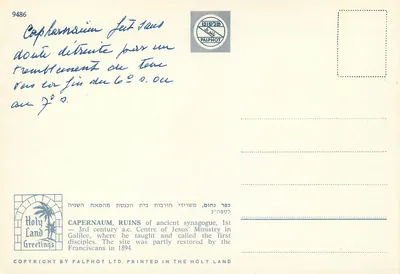 9486
Capharnaüm fut sans
doute détruite par un
tremblement de terre
vers la fin du 6° s. ou
au 7° s.
פלפוט
PALPHOT
Holy
Land
Greetings
כפר נחום, משרידי חורבות בית הכנסת מהמאה השניה
לספה"נ
CAPERNAUM, RUINS of ancient synagogue, 1st
— 3rd century a.c. Centre of Jesus' Ministry in
Galilee, where he taught and called the first
disciples. The site was partly restored by the
Franciscans in 1894.
COPYRIGHT BY PALPHOT LTD. PRINTED IN THE HOLY LAND